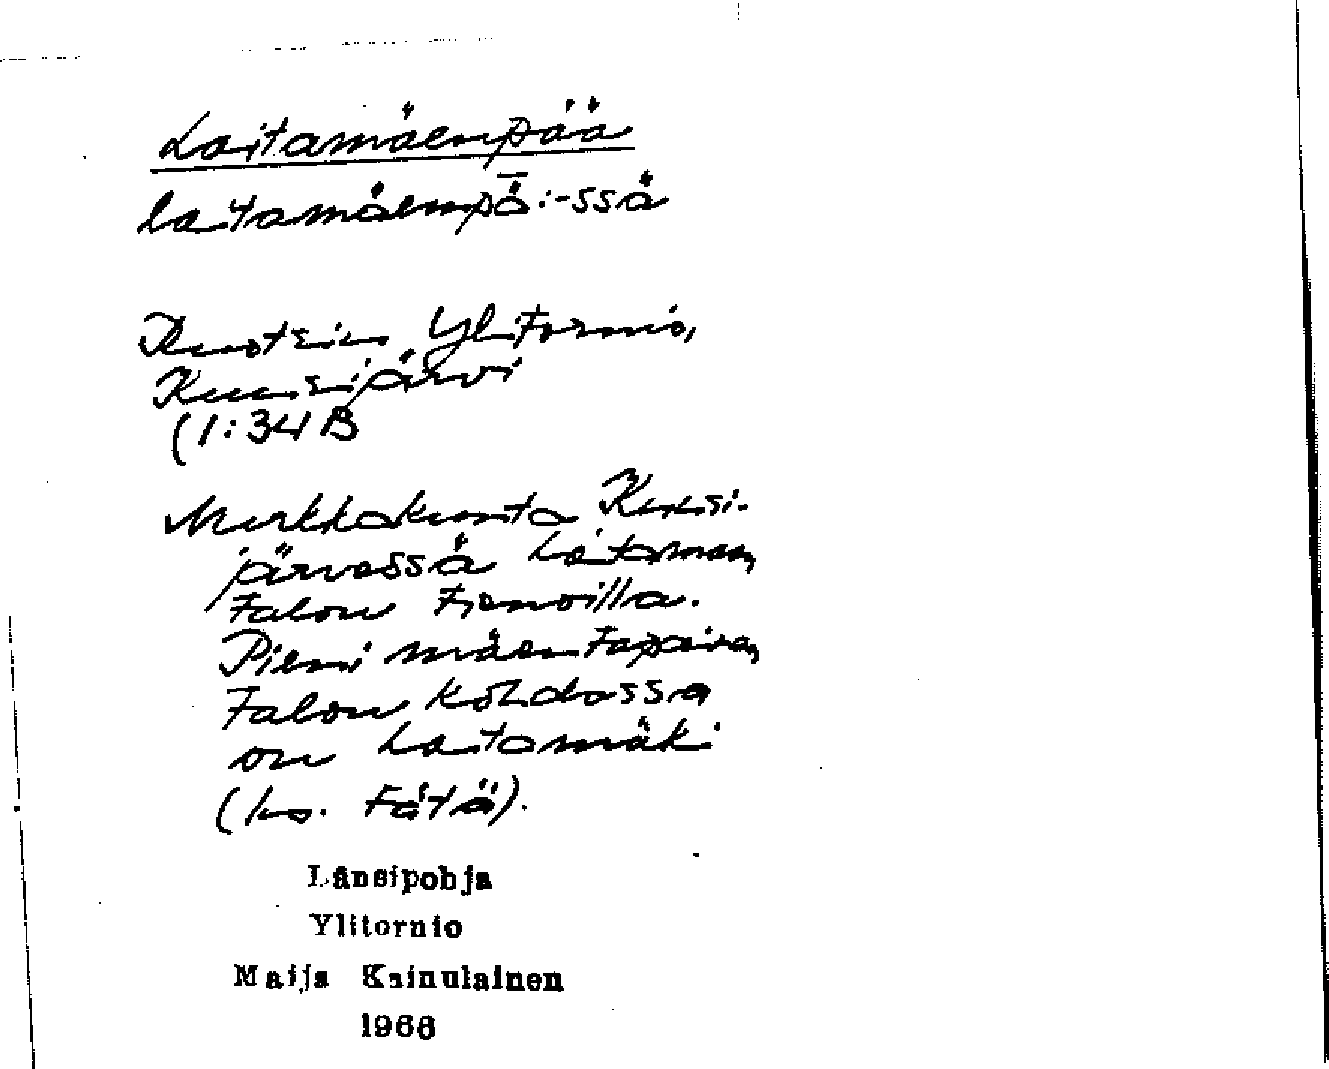 Laitamäenpää
laitamäempǟ:-ssä
Ruotsin Ylitornio,
Kuusijärvi
(1:34 B
Merkkakunta Kuusi-
järvessä Laitamaan
talon tienoilla.
Pieni mäentapainen,
talon kohdassa
on Laitamäki
(ks. tätä).
Länsipohja
Ylitornio
Maija Kainulainen
1966